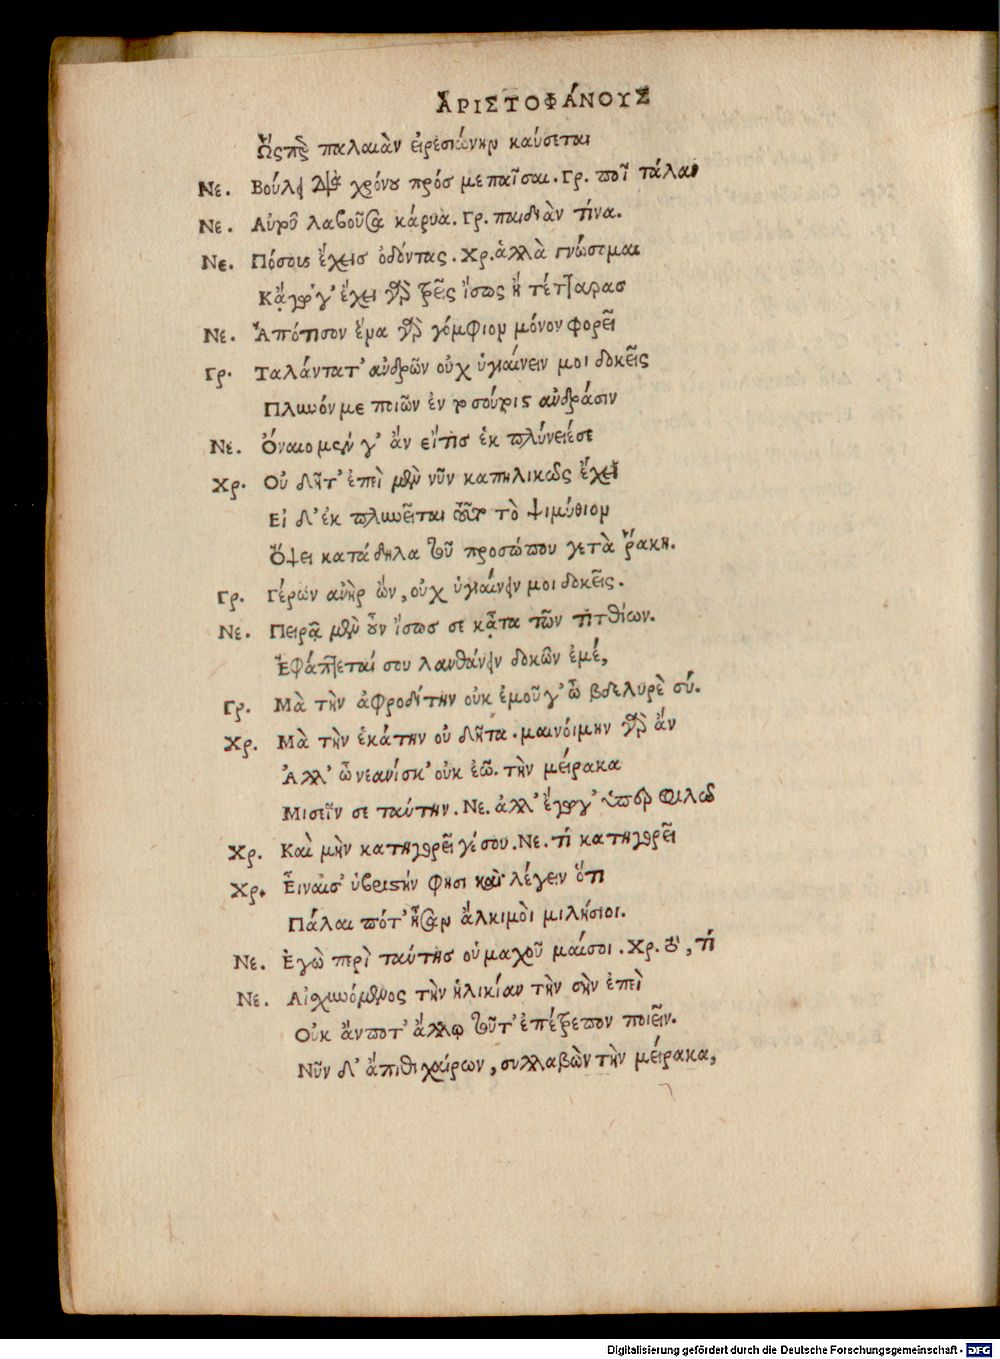 ἈΡΙΣΤΟΦΆΝΟΥΣ
Ὥςπερ παλαιὰν εἰρεσιώνην καύσεται
Νε. Βούλει διὰ χρόνου πρός με παῖσαι. Γρ. ποῖ τάλαν
Νε. Αὐτοῦ λαβοῦσα κάρυα. Γρ. παιδιὰν τίνα.
Νε. Πόσους ἔχεισ ὀδόντας. Χρ. ἀλλὰ γνώσομαι
Κἄγωγ' ἔχει γὰρ τρεῖς ἴσως ἢ τέτταρασ
Νε. Ἀπότισον ἕνα γὰρ γόμφιον μόνον φορεῖ
Γρ. Ταλάντατ' ἀνδρῶν οὐχ ὑγιαίνειν μοι δοκεῖς
Πλυνόν με ποιῶν ἐν τοσούτοις ἀνδράσιν
Νε. Ὄναιο μεν γ' ἄν εἴτισ ἐκ πλύνειέσε
Χρ. Οὐ δῆτ' ἐπεὶ μὲν νῦν καπηλικῶς ἔχει
Εἰ δ' ἐκ πλυνεῖται τοῦτο τὸ ψιμύθιον
Ὄψει κατάδηλα τοῦ προσώπου γετὰ ῥάκη.
Γρ. Γέρων ἀνὴρ ὢν, οὐχ ὑγιαίνειν μοι δοκεῖς.
Νε. Πειρᾷ μὲν οὖν ἴσωσ σε κᾆτα τῶν τιτθίων.
Ἐφάπτεταί σου λανθάνειν δοκῶν ἐμέ,
Γρ. Μὰ τὴν ἀφροδίτην οὐκ ἐμοῦ γ' ὦ βδελυρὲ σύ.
Χρ. Μὰ τὴν ἑκάτην οὐ δῆτα. μαινόιμην γὰρ ἄν
Ἀλλ' ὦ νεανίσκ' οὐκ ἐῶ. τὴν μείρακα
Μισεῖν σε ταύτην. Νε. ἀλλ' ἔγωγ' ὑπερ φιλῶ
Χρ. Καὶ μὴν κατηγορεῖ γέ σου. Νε. τί κατηγορεῖ
Χρ. Εἶναισ' ὑβριστήν φησι καὶ λέγειν ὅτι
Πάλαι πότ' ἦσαν ἄλκιμοὶ μιλήσιοι.
Νε. Ἐγὼ περὶ ταύτησ οὐ μαχοῦ μαίσοι. Χρ. τὸ, τί
Νε. Αἰσχυνόμενος τὴν ἡλικίαν τὴν σὴν ἐπεὶ
Οὐκ ἄν ποτ' ἄλλῳ τοῦτ' ἐπέτρεπον ποιεῖν.
Νῦν δ' ἄπιθι χαίρων, συλλαβὼν τὴν μείρακα,
Digitalisierung gefördert durch die Deutsche Forschungsgemeinschaft - DFG